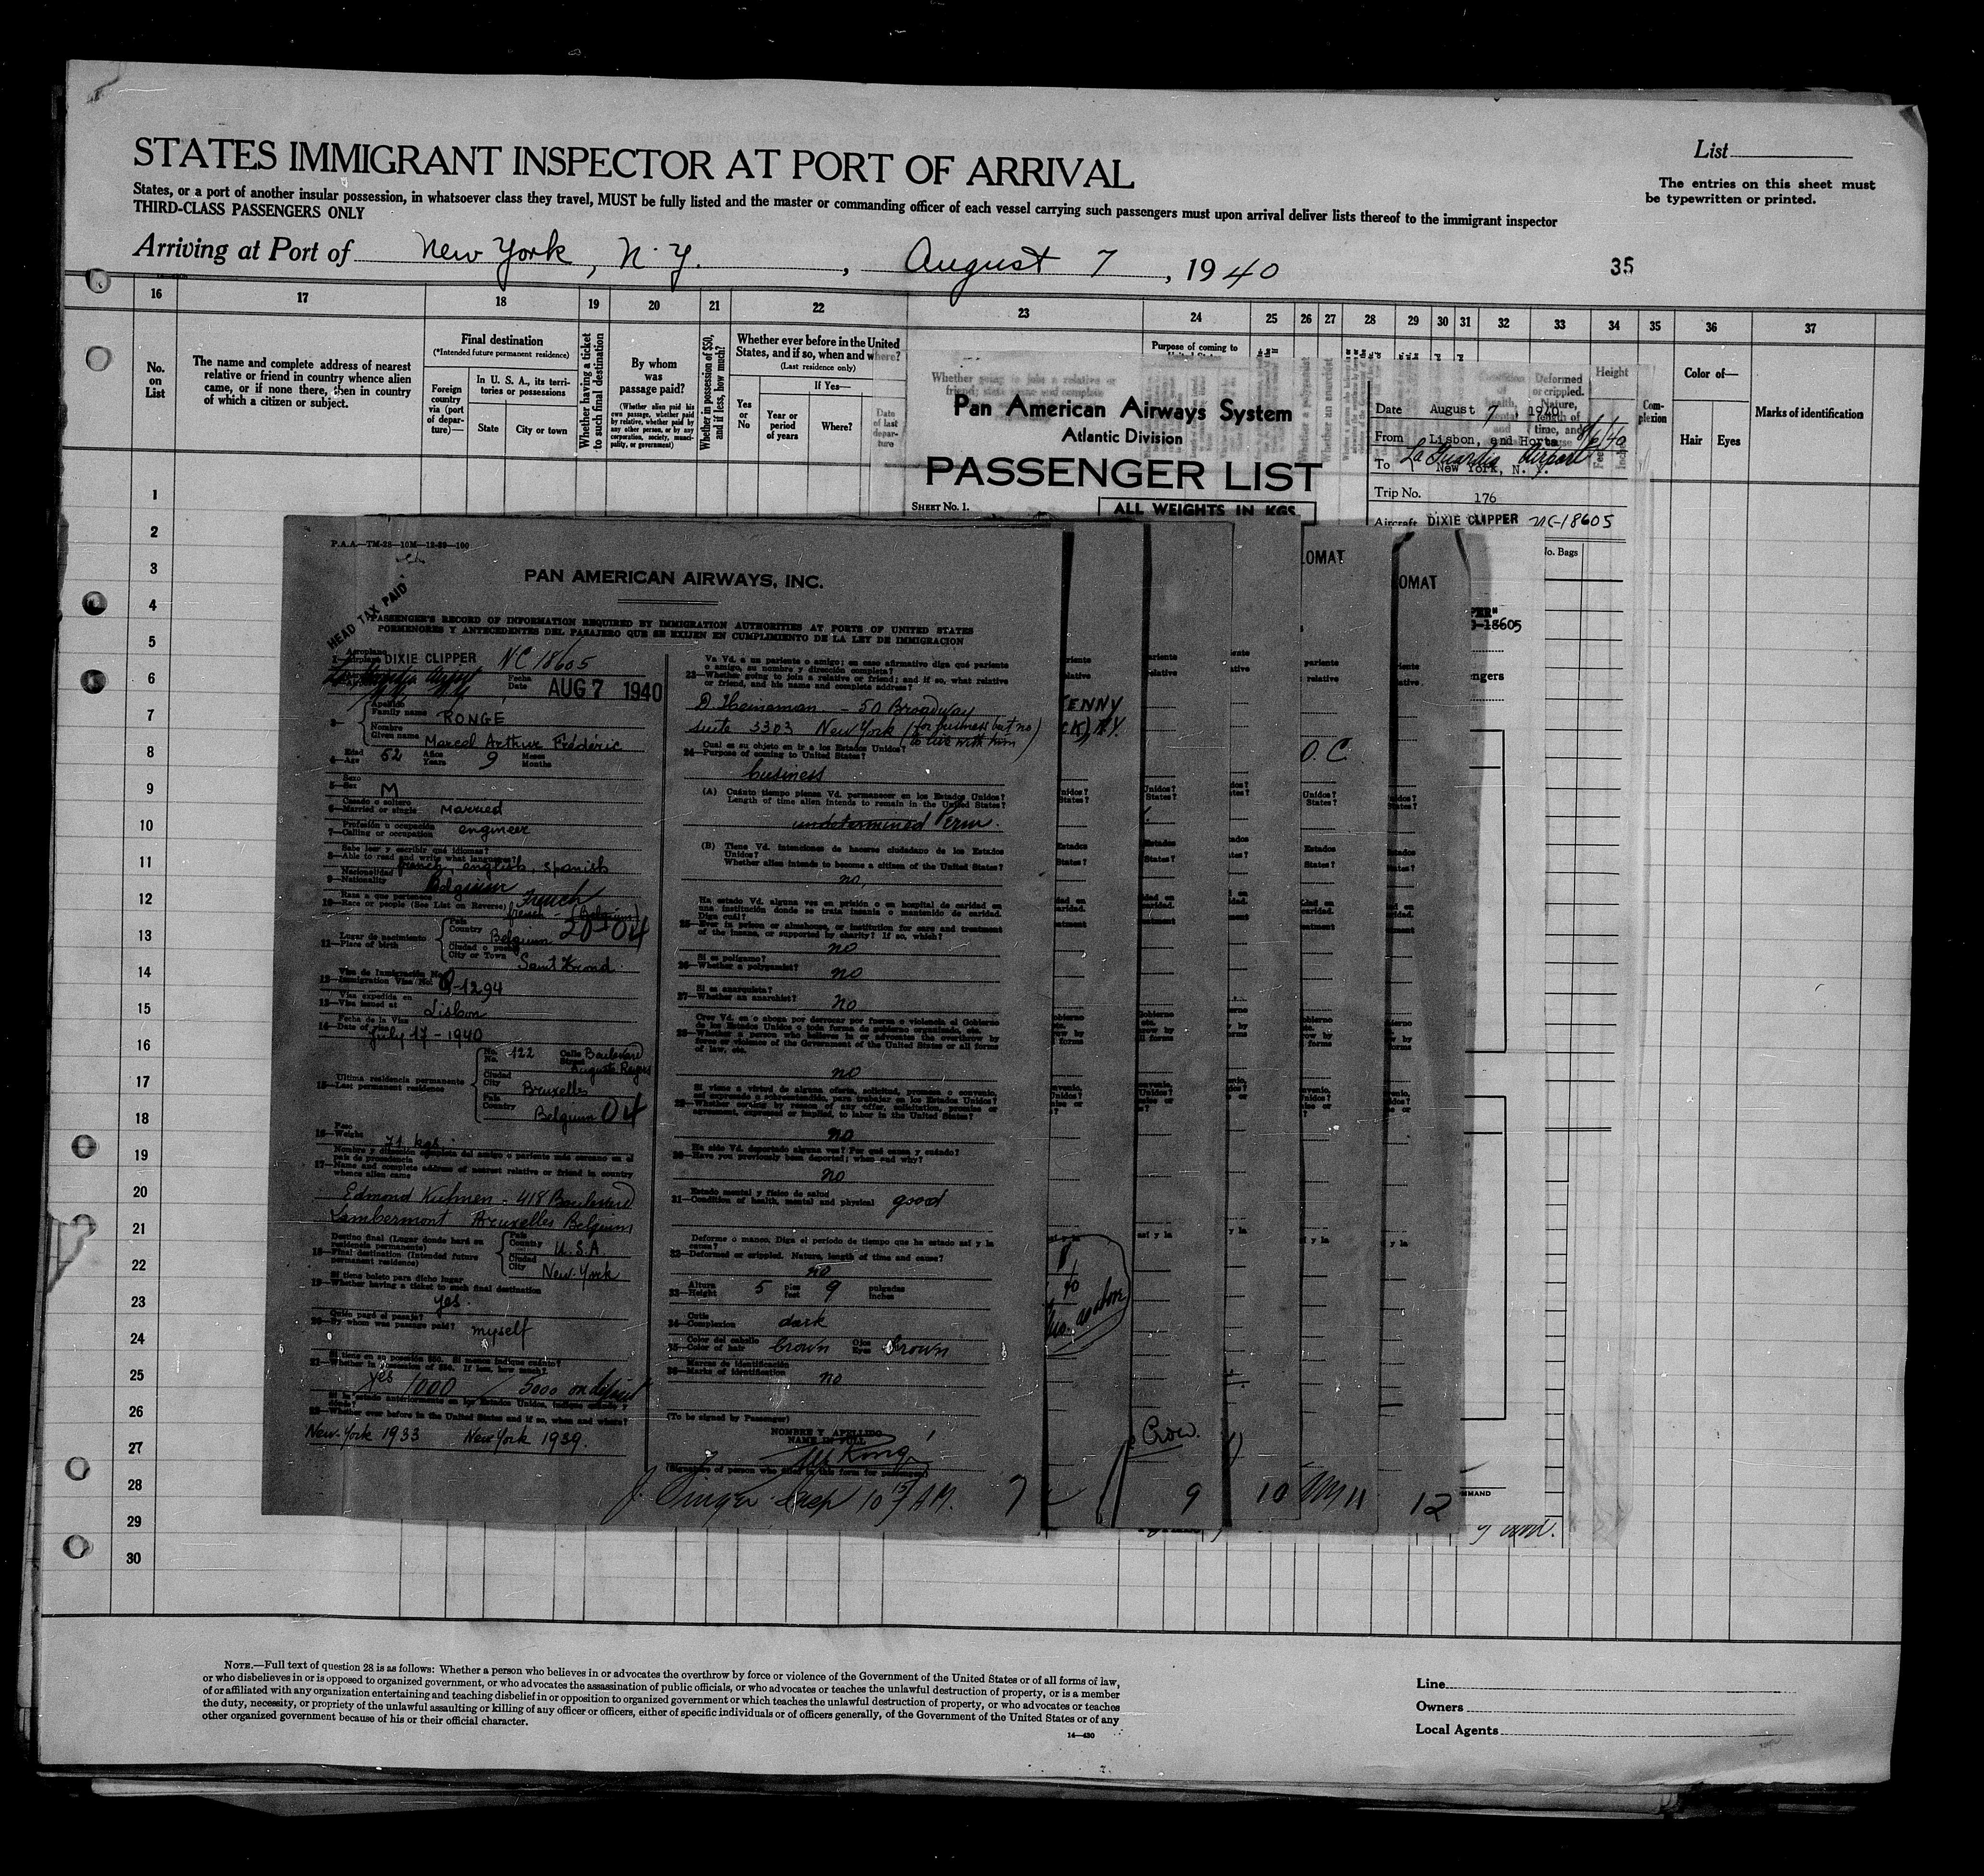 STATES IMMIGRANT INSPECTOR AT PORT OF ARRIVAL
States, or a port of another insular possession, in whatsoever class they travel, MUST be fully listed and the master or commanding officer of each vessel carrying such passengers must upon arrival deliver lists thereof to the immigrant inspector
THIRD-CLASS PASSENGERS ONLY
List
The entries on this sheet must
be typewritten or printed.
Arriving at Port of New York, N.Y., August 7, 1940
35
16 17 18 19 20 21 22 23 24 25 26 27 28 29 30 31 32 33 34 35 36 37
No.
on
List
The name and complete address of nearest
relative or friend in country whence alien
came, or if none there, then in country
of which a citizen or subject.
Final destination
(*Intended future permanent residence)
Foreign
country
via (port
of depar-
ture)—
In U. S. A., its terri-
tories or possessions
State
City or town
Whether having a ticket
to such final destination
By whom
was
passage paid?
(Whether alien paid his
own passage, whether paid
by relative, whether paid by
any other person, or by any
corporation, society, munici-
pality, or government)
Whether in possession of $50,
and if less, how much?
Whether ever before in the United
States, and if so, when and where?
(Last residence only)
Yes
or
No
If Yes—
Year or
period
of years
Where?
Date
of last
depar-
ture
Whether going to join a relative or
friend; state name and complete
Purpose of coming to
United States
Whether a polygamist
Whether an anarchist
Deformed
or crippled.
Nature,
length of
time, and
cause
Height
Feet
Inches
Com-
plexion
Color of—
Hair
Eyes
Marks of identification
Pan American Airways System
Atlantic Division
PASSENGER LIST
SHEET No. 1.
ALL WEIGHTS IN KGS
Date August 7, 1940
From Lisbon, and Horta 8/6/40
To La Guardia Airport
New York, N. Y.
Trip No. 176
Aircraft DIXIE CLIPPER NC-18605
No. Bags
1
2
3
4
5
6
7
8
9
10
11
12
13
14
15
16
17
18
19
20
21
22
23
24
25
26
27
28
29
30
P.A.A.—TM-28—10M—12-39—100
PAN AMERICAN AIRWAYS, INC.
HEAD TAX PAID
PASSENGER'S RECORD OF INFORMATION REQUIRED BY IMMIGRATION AUTHORITIES AT PORTS OF UNITED STATES
PORMENORES Y ANTECEDENTES DEL PASAJERO QUE SE EXIJEN EN CUMPLIMIENTO DE LA LEY DE IMMIGRACION
Aeroplano
1—Airplane DIXIE CLIPPER NC 18605
La Guardia Airport
N.Y. N.Y.
Fecha
Date AUG 7 1940
3—
Apellido
Family name RONGÉ
Nombre
Given name Marcel Arthur Frédéric
Edad
4—Age 52
Años
Years 9
Meses
Months
Sexo
5—Sex M
Casado o soltero
6—Married or single Married
Profesión u ocupación
7—Calling or occupation engineer
Sabe leer y escribir qué idiomas?
8—Able to read and write what languages? french, english, spanish
Nacionalidad
9—Nationality Belgium
Raza a que pertenece
10—Race or people (See List on Reverse) French
french - (Belgium)
Lugar de nacimiento
11—Place of birth
País
Country Belgium 04
Ciudad o pueblo
City or Town Saint Trond
Visa de Inmigración No.
12—Immigration Visa No. Q-1294
Visa expedida en
13—Visa issued at Lisbon
Fecha de la Visa
14—Date of visa July 17 - 1940
Ultima residencia permanente
15—Last permanent residence
No.
No. 122
Calle
Street Boulevard
Auguste Reyers
Ciudad
City Bruxelles
País
Country Belgium 04
Peso
16—Weight 71 kgs.
Nombre y dirección completa del amigo o pariente más cercano en el
país de procedencia
17—Name and complete address of nearest relative or friend in country
whence alien came
Edmond Kuhnen - 418 Boulevard
Lambermont Bruxelles Belgium
Destino final (Lugar donde hará su
residencia permanente)
18—Final destination (Intended future
permanent residence)
País
Country U.S.A.
Ciudad
City New-York
Si tiene boleto para dicho lugar
19—Whether having a ticket to such final destination
yes.
Quién pagó el pasaje?
20—By whom was passage paid? myself
Si tiene en su posesión $50. Si menos indique cuánto?
21—Whether in possession of $50. If less, how much?
yes 1000 / 5000 on deposit
22—Whether ever before in the United States and if so, when and where?
New-York 1933 New-York 1939.
Va Vd. a un pariente o amigo; en caso afirmativo diga qué pariente
o amigo, su nombre y dirección completa?
23—Whether going to join a relative or friend; and if so, what relative
or friend, and his name and complete address?
D. Heineman - 50 Broadway
suite 3303 New York (for business but no)
to live with him
Cual es su objeto en ir a los Estados Unidos?
24—Purpose of coming to United States?
business
(A) Cuánto tiempo piensa Vd. permanecer en los Estados Unidos?
Length of time alien intends to remain in the United States?
undetermined Perm.
(B) Tiene Vd. intenciones de hacerse ciudadano de los Estados
Unidos?
Whether alien intends to become a citizen of the United States?
no,
Ha estado Vd. alguna vez en prisión o en hospital de caridad en
una institución donde se trata insania o mantenido de caridad.
Diga cuál?
25—Ever in prison or almshouse, or institution for care and treatment
of the insane, or supported by charity? If so, which?
no
Si es polígamo?
26—Whether a polygamist? no
Si es anarquista?
27—Whether an anarchist? no
Cree Vd. en o aboga por derrocar por fuerza o violencia el Gobierno
de los Estados Unidos o toda forma de gobierno organizado, etc.
28—Whether a person who believes in or advocates the overthrow by
force or violence of the Government of the United States or all forms
of law, etc.
no
Si viene a virtud de alguna oferta, solicitud, promesa o convenio,
así expresado o sobrentendido, para trabajar en los Estados Unidos?
29—Whether coming by reason of any offer, solicitation, promise or
agreement, expressed or implied, to labor in the United States?
no
Ha sido Vd. deportado alguna vez? Por qué causa y cuándo?
30—Have you previously been deported; when and why?
no
Estado mental y físico de salud
31—Condition of health, mental and physical good
Deforme o manco. Diga el período de tiempo que ha estado así y la
causa?
32—Deformed or crippled. Nature, length of time and cause?
no
Altura
33—Height 5
pies
feet 9
pulgadas
inches
Cutis
34—Complexion dark
Color del cabello
35—Color of hair brown
Ojos
Eyes brown
Marcas de identificación
36—Marks of identification no
(To be signed by Passenger)
NOMBRE Y APELLIDO
NAME IN FULL
(Signature of person who filled in this form for passenger)
J. Singer Insp 10 15 AM. 7
9 10 11 12
LOMAT
OMAT
18605
KENNY
N.Y.
D.C.
Crow.
NOTE.—Full text of question 28 is as follows: Whether a person who believes in or advocates the overthrow by force or violence of the Government of the United States or of all forms of law,
or who disbelieves in or is opposed to organized government, or who advocates the assassination of public officials, or who advocates or teaches the unlawful destruction of property, or is a member
of or affiliated with any organization entertaining and teaching disbelief in or opposition to organized government or which teaches the unlawful destruction of property, or who advocates or teaches
the duty, necessity, or propriety of the unlawful assaulting or killing of any officer or officers, either of specific individuals or of officers generally, of the Government of the United States or of any
other organized government because of his or their official character.
14—430
Line
Owners
Local Agents